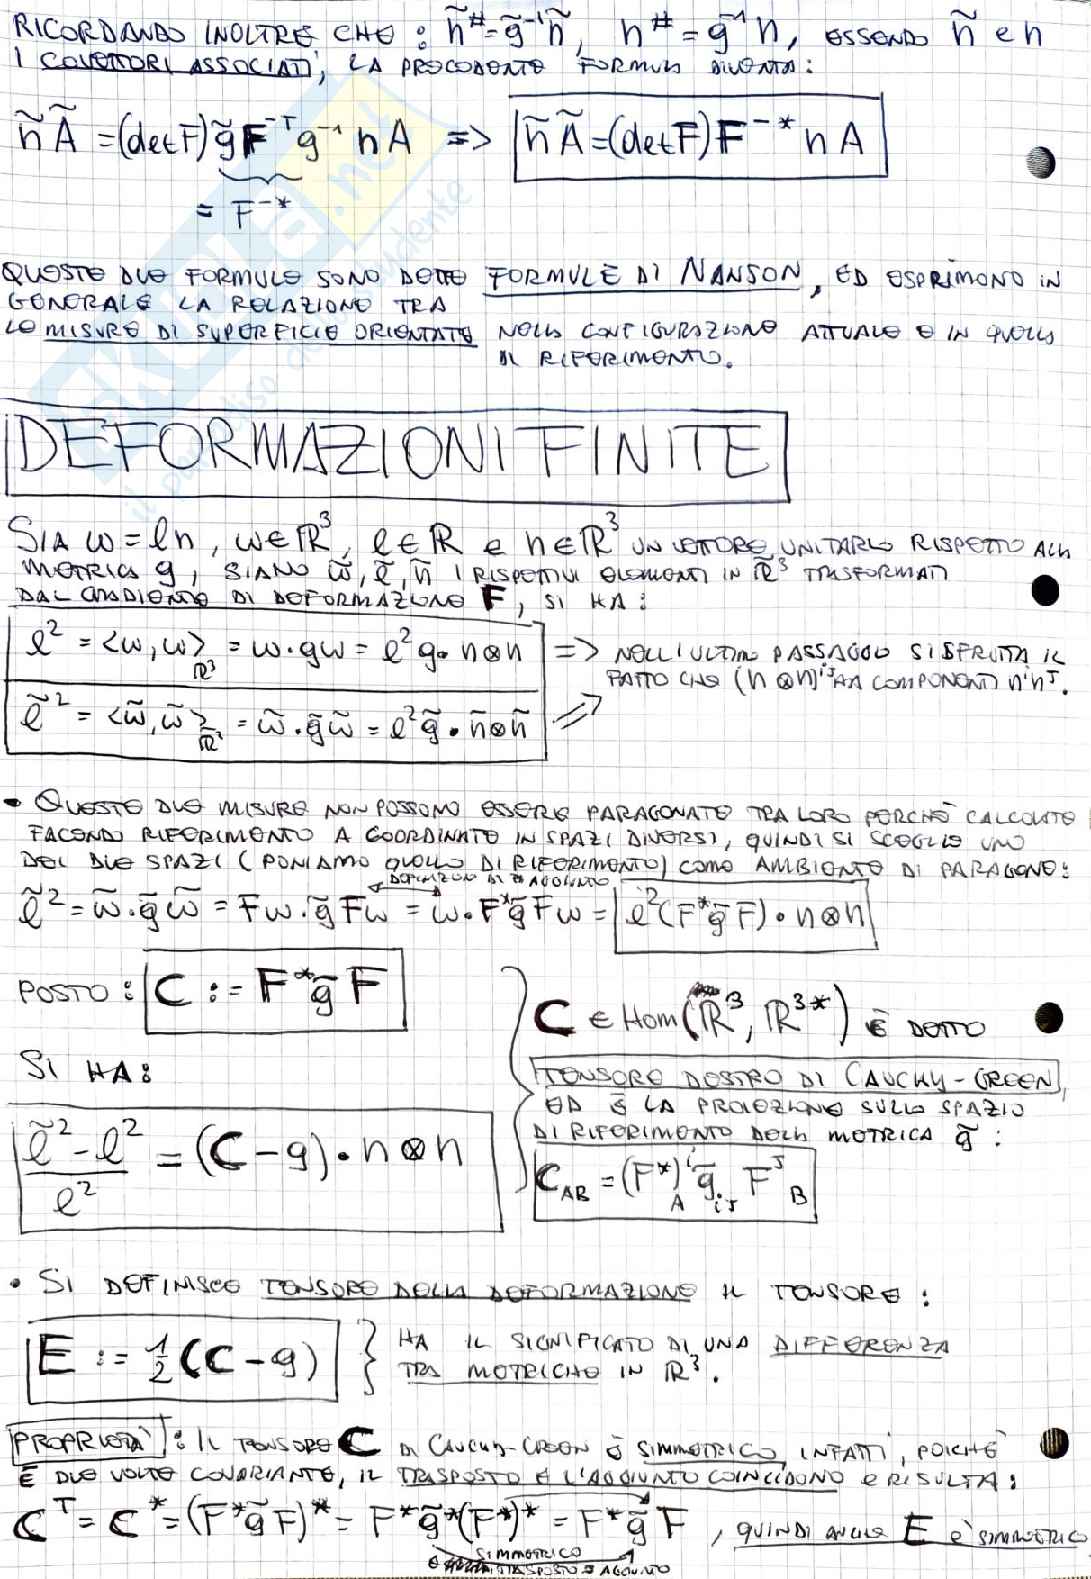 RICORDANDO INOLTRE CHE : ñ^# = g̃⁻¹ñ, n^# = g⁻¹n, ESSENDO ñ e n
I COVETTORI ASSOCIATI, LA PRECEDENTE FORMULA DIVENTA:
ñÃ = (det F) g̃ F^{-T} g⁻¹ n A => ñÃ = (det F) F^{-*} n A
= F^{-*}
QUESTE DUE FORMULE SONO DETTE FORMULE DI NANSON, ED ESPRIMONO IN
GENERALE LA RELAZIONE TRA
LE MISURE DI SUPERFICIE ORIENTATE NELLA CONFIGURAZIONE ATTUALE E IN QUELLA
DI RIFERIMENTO.
DEFORMAZIONI FINITE
SIA w = ℓn, w ∈ ℝ³, ℓ ∈ ℝ e n ∈ ℝ³ UN VETTORE UNITARIO RISPETTO ALLA
METRICA g, SIANO w̃, ℓ̃, ñ I RISPETTIVI ELEMENTI IN ℝ̃³ TRASFORMATI
DAL GRADIENTE DI DEFORMAZIONE F, SI HA:
ℓ² = <w, w>_{ℝ³} = w · gw = ℓ² g · n⊗n => NELL'ULTIMO PASSAGGIO SI SFRUTTA IL
FATTO CHE (n⊗n)^{ij} HA COMPONENTI nⁱnʲ.
ℓ̃² = <w̃, w̃>_{ℝ̃³} = w̃ · g̃w̃ = ℓ² g̃ · ñ⊗ñ
• QUESTE DUE MISURE NON POSSONO ESSERE PARAGONATE TRA LORO PERCHÈ CALCOLATE
FACENDO RIFERIMENTO A COORDINATE IN SPAZI DIVERSI, QUINDI SI SCEGLIE UNO
DEI DUE SPAZI (PONIAMO QUELLO DI RIFERIMENTO) COME AMBIENTE DI PARAGONE:
DEFINIZIONE DI AGGIUNTO
ℓ̃² = w̃ · g̃w̃ = Fw · g̃Fw = w · F*g̃Fw = ℓ²(F*g̃F) · n⊗n
POSTO : C := F*g̃F
C ∈ Hom(ℝ³, ℝ³*) È DETTO
SI HA:
TENSORE DESTRO DI CAUCHY-GREEN,
ED È LA PROIEZIONE SULLO SPAZIO
DI RIFERIMENTO DELLA METRICA g̃ :
(ℓ̃² - ℓ²)/ℓ² = (C - g) · n⊗n
C_{AB} = (F*)_A^i g̃_{iJ} F^J_B
• SI DEFINISCE TENSORE DELLA DEFORMAZIONE IL TENSORE :
E := ½(C - g) } HA IL SIGNIFICATO DI UNA DIFFERENZA
TRA METRICHE IN ℝ³.
PROPRIETÀ : IL TENSORE C DI CAUCHY-GREEN È SIMMETRICO INFATTI, POICHÈ
È DUE VOLTE COVARIANTE, IL TRASPOSTO E L'AGGIUNTO COINCIDONO E RISULTA:
C^T = C* = (F*g̃F)* = F*g̃*(F*)* = F*g̃F, QUINDI ANCHE E È SIMMETRICO
SIMMETRICO
TRASPOSTO = AGGIUNTO
SKUOLA.net